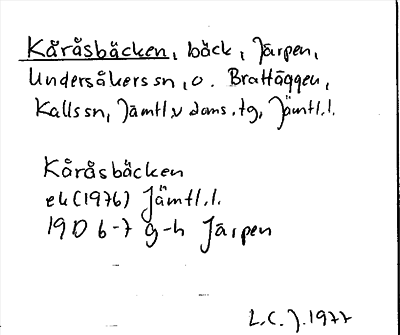 Kåråsbäcken, bäck, Järpen,
Undersåkers sn, o. Brattäggen,
Kalls sn, Jämtl v doms. tg, Jämtl. l.
Kåråsbäcken
ek (1976) Jämtl. l.
19D 6-7 g-h Järpen
L.C.J. 1977